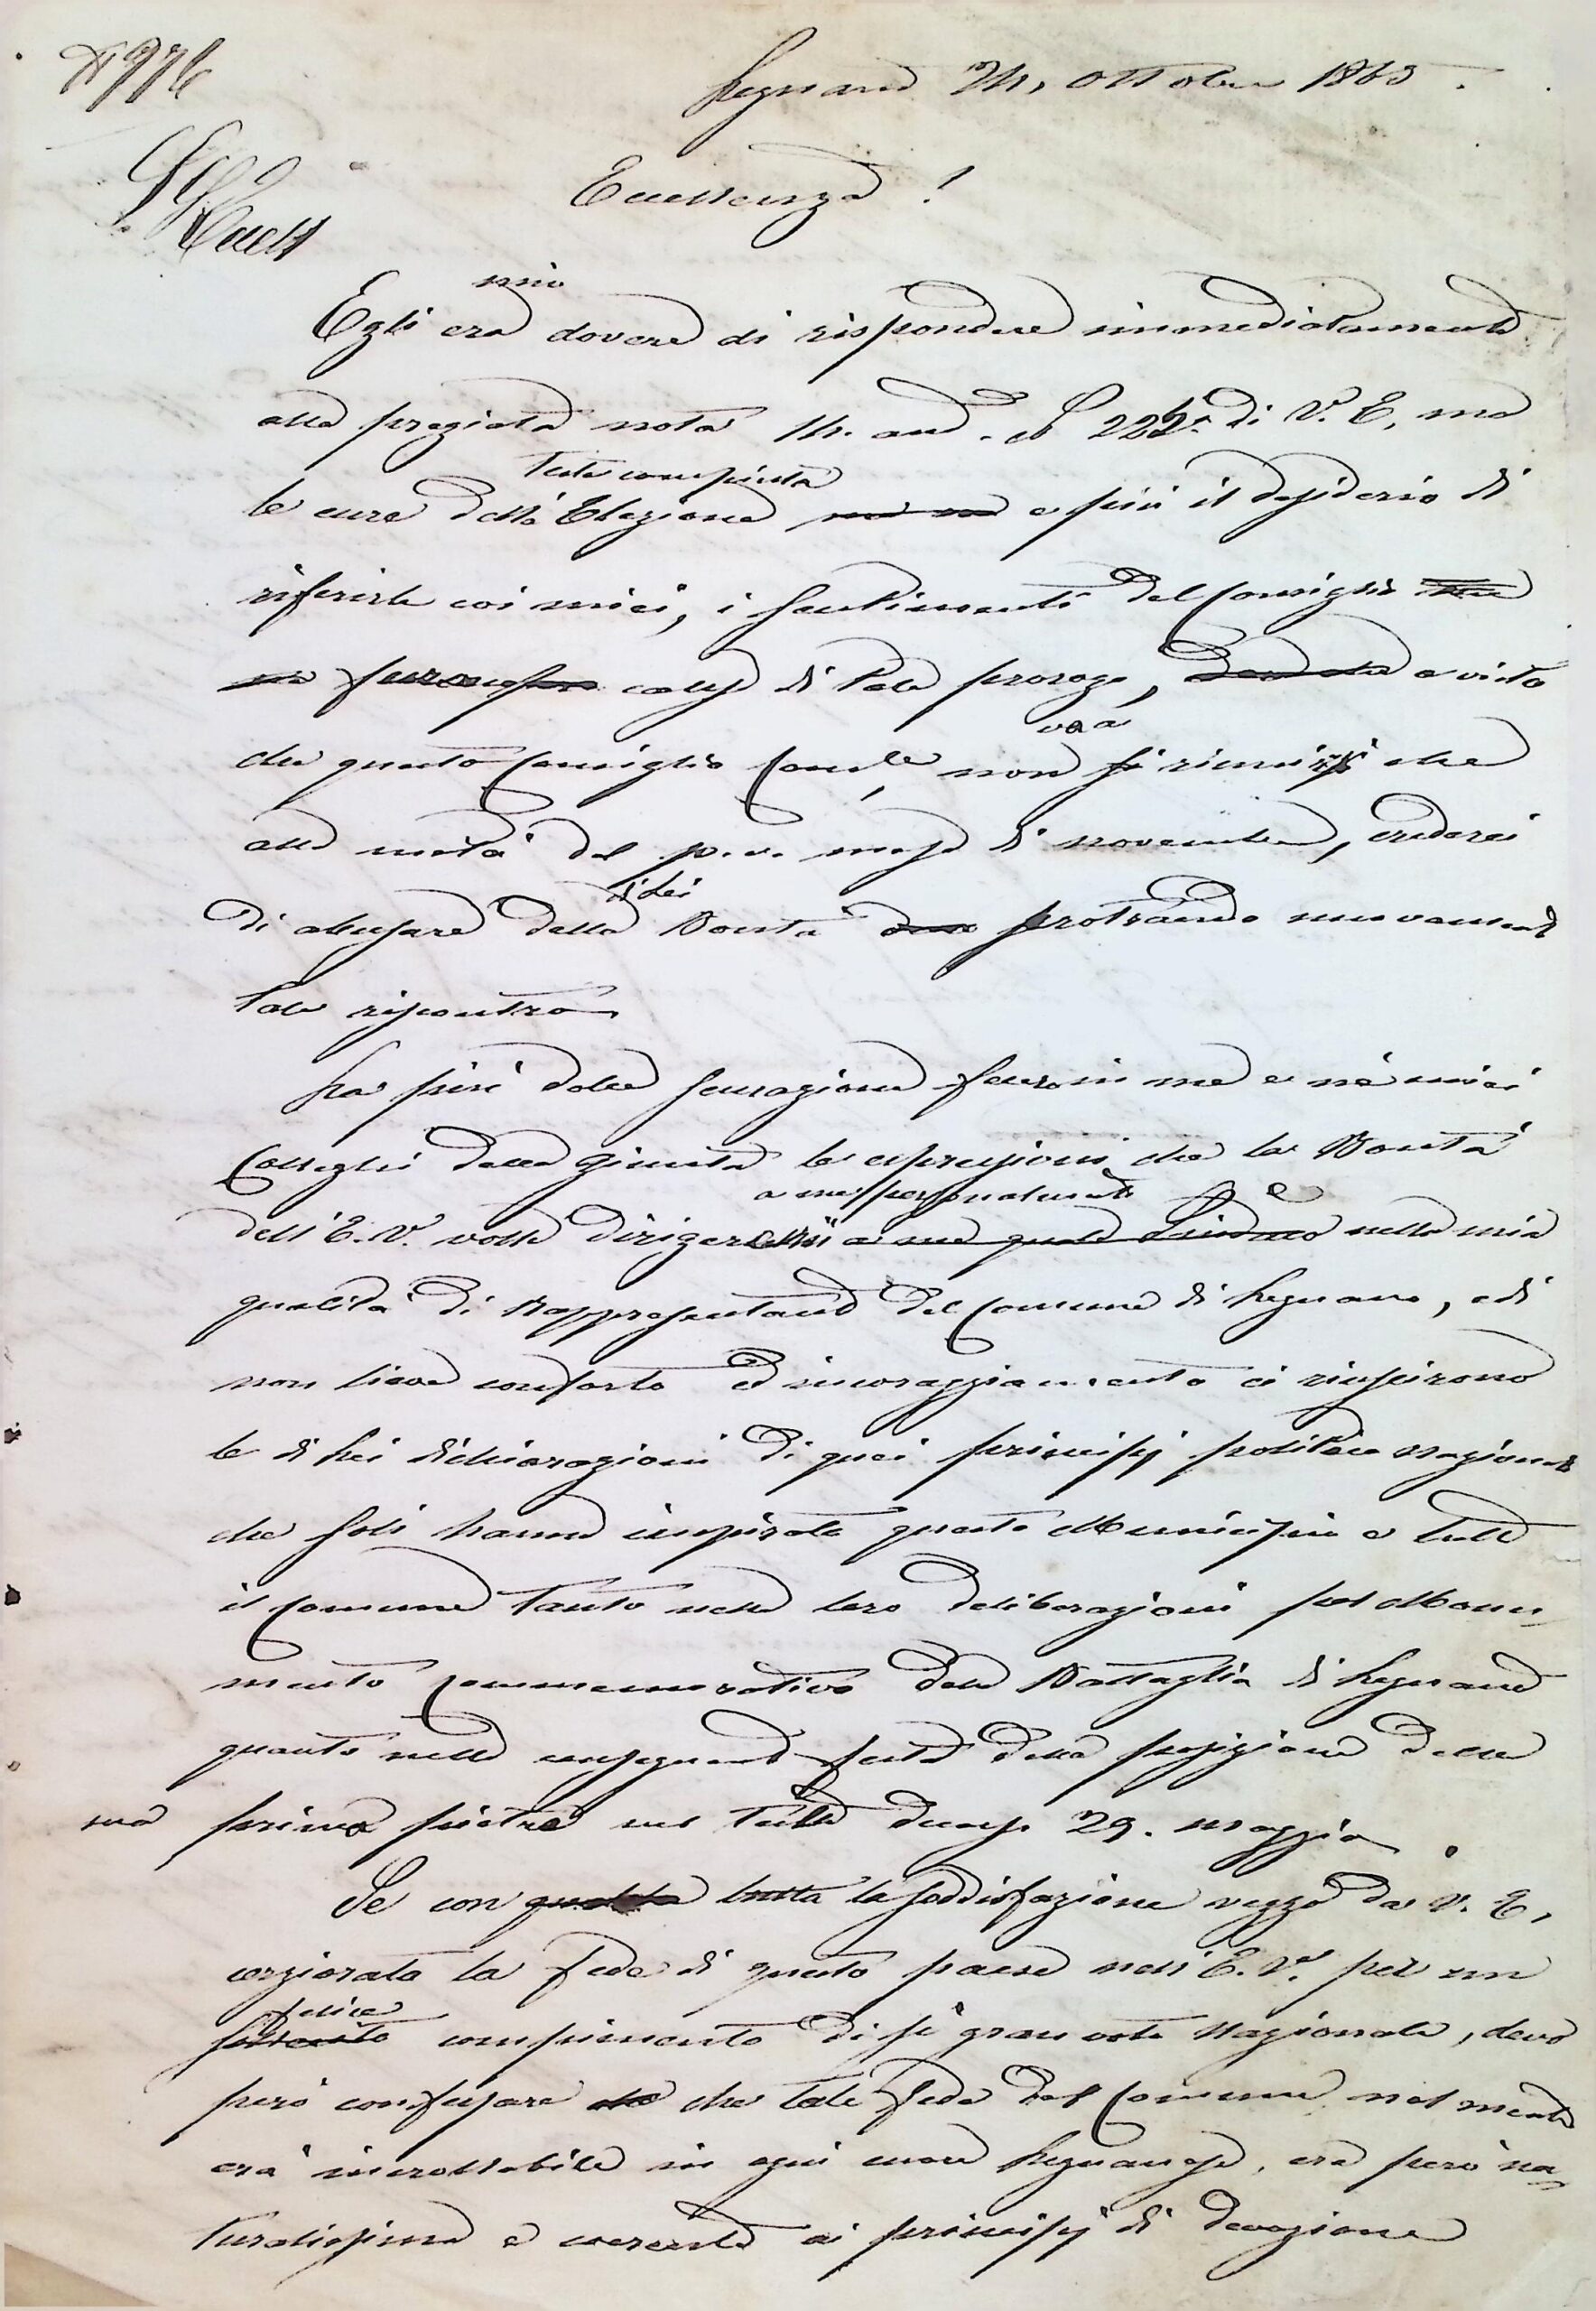 N 976
Legnano 24, Ottobre 1863.
Eccellenza!
mio
Egli era dovere di rispondere immediatamente
alla pregiata nota 14. and. di V. E, ma
teste compiuta
le cure della Elezione e più il desiderio di
riferirle coi miei, i sentimenti del Consiglio
furono causa di tale proroga, e visto
che questo Consiglio Comle non si riunirà che
alla metà del p. v. mese di novembre, crederei
di Lei
di abusare della Bontà protraendo nuovamente
tale riscontro.
La più dolce sensazione fecero in me e nè miei
Colleghi della Giunta le espressioni che la Bontà
a me personalmente
dell'E. V. volle dirigere a me quale Sindaco nella mia
qualità di Rappresentante del Comune di Legnano, e di
non lieve conforto ed incoraggiamento ci riuscirono
le di Lei dichiarazioni di quei principj politico nazionali
che soli hanno inspirato questo Municipio e tutto
il Comune tanto nelle loro deliberazioni pel Monu-
mento Commemorativo della Battaglia di Legnano
quanto nella conseguente festa della posizione della
sua prima pietra nel 29. maggio.
Se con tutta la soddisfazione veggo da V. E,
la fede di questo paese nell'E. V. per un
felice
compimento di sì gran voto Nazionale, devo
però confessare che tale fede del Comune nel mentre
era incrollabile in ogni cuore Legnanese, era però na-
turalissima e coerente ai principj di devozione